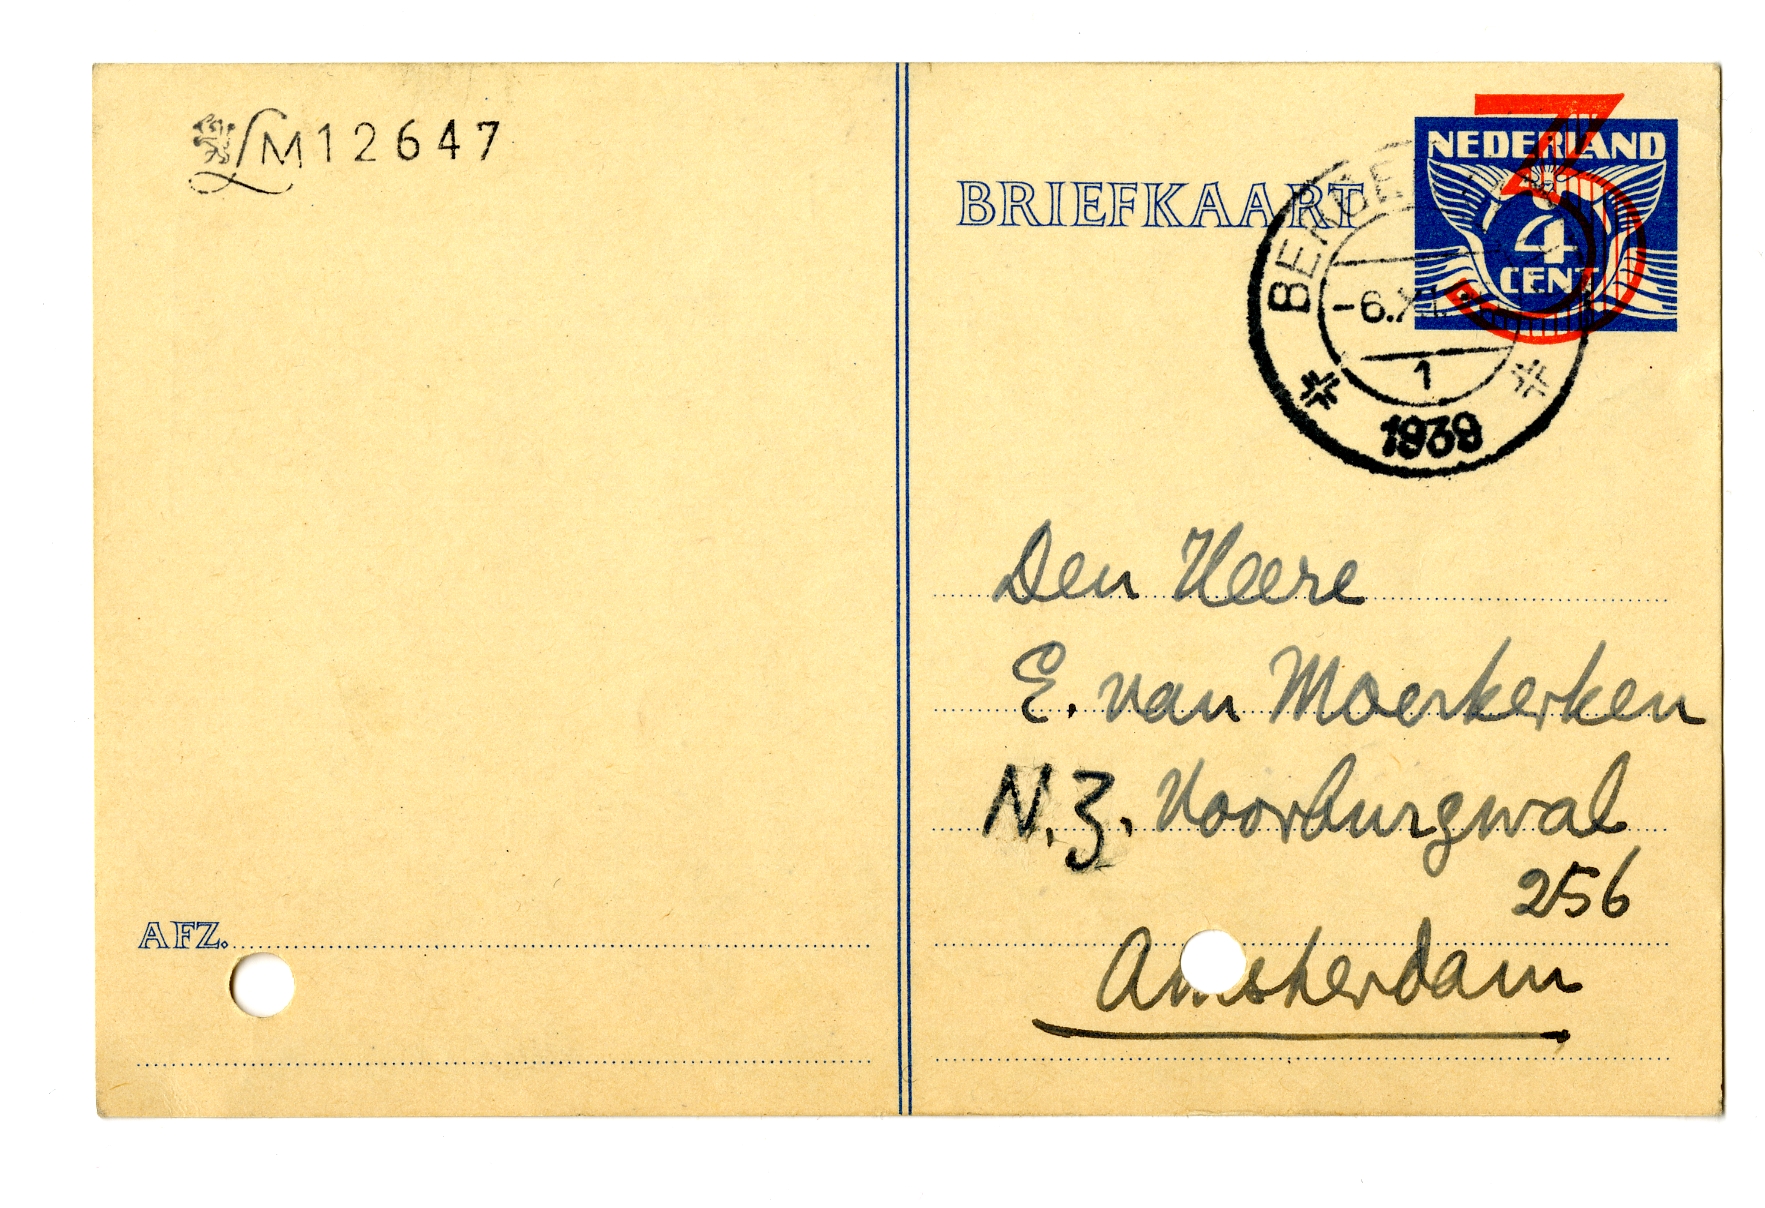 LM12647
BRIEFKAART
NEDERLAND
3
4
CENT
-6.XI
1
1939
Den Heere
E. van Moerkerken
N.Z. Voorburgwal
256
Amsterdam
AFZ.